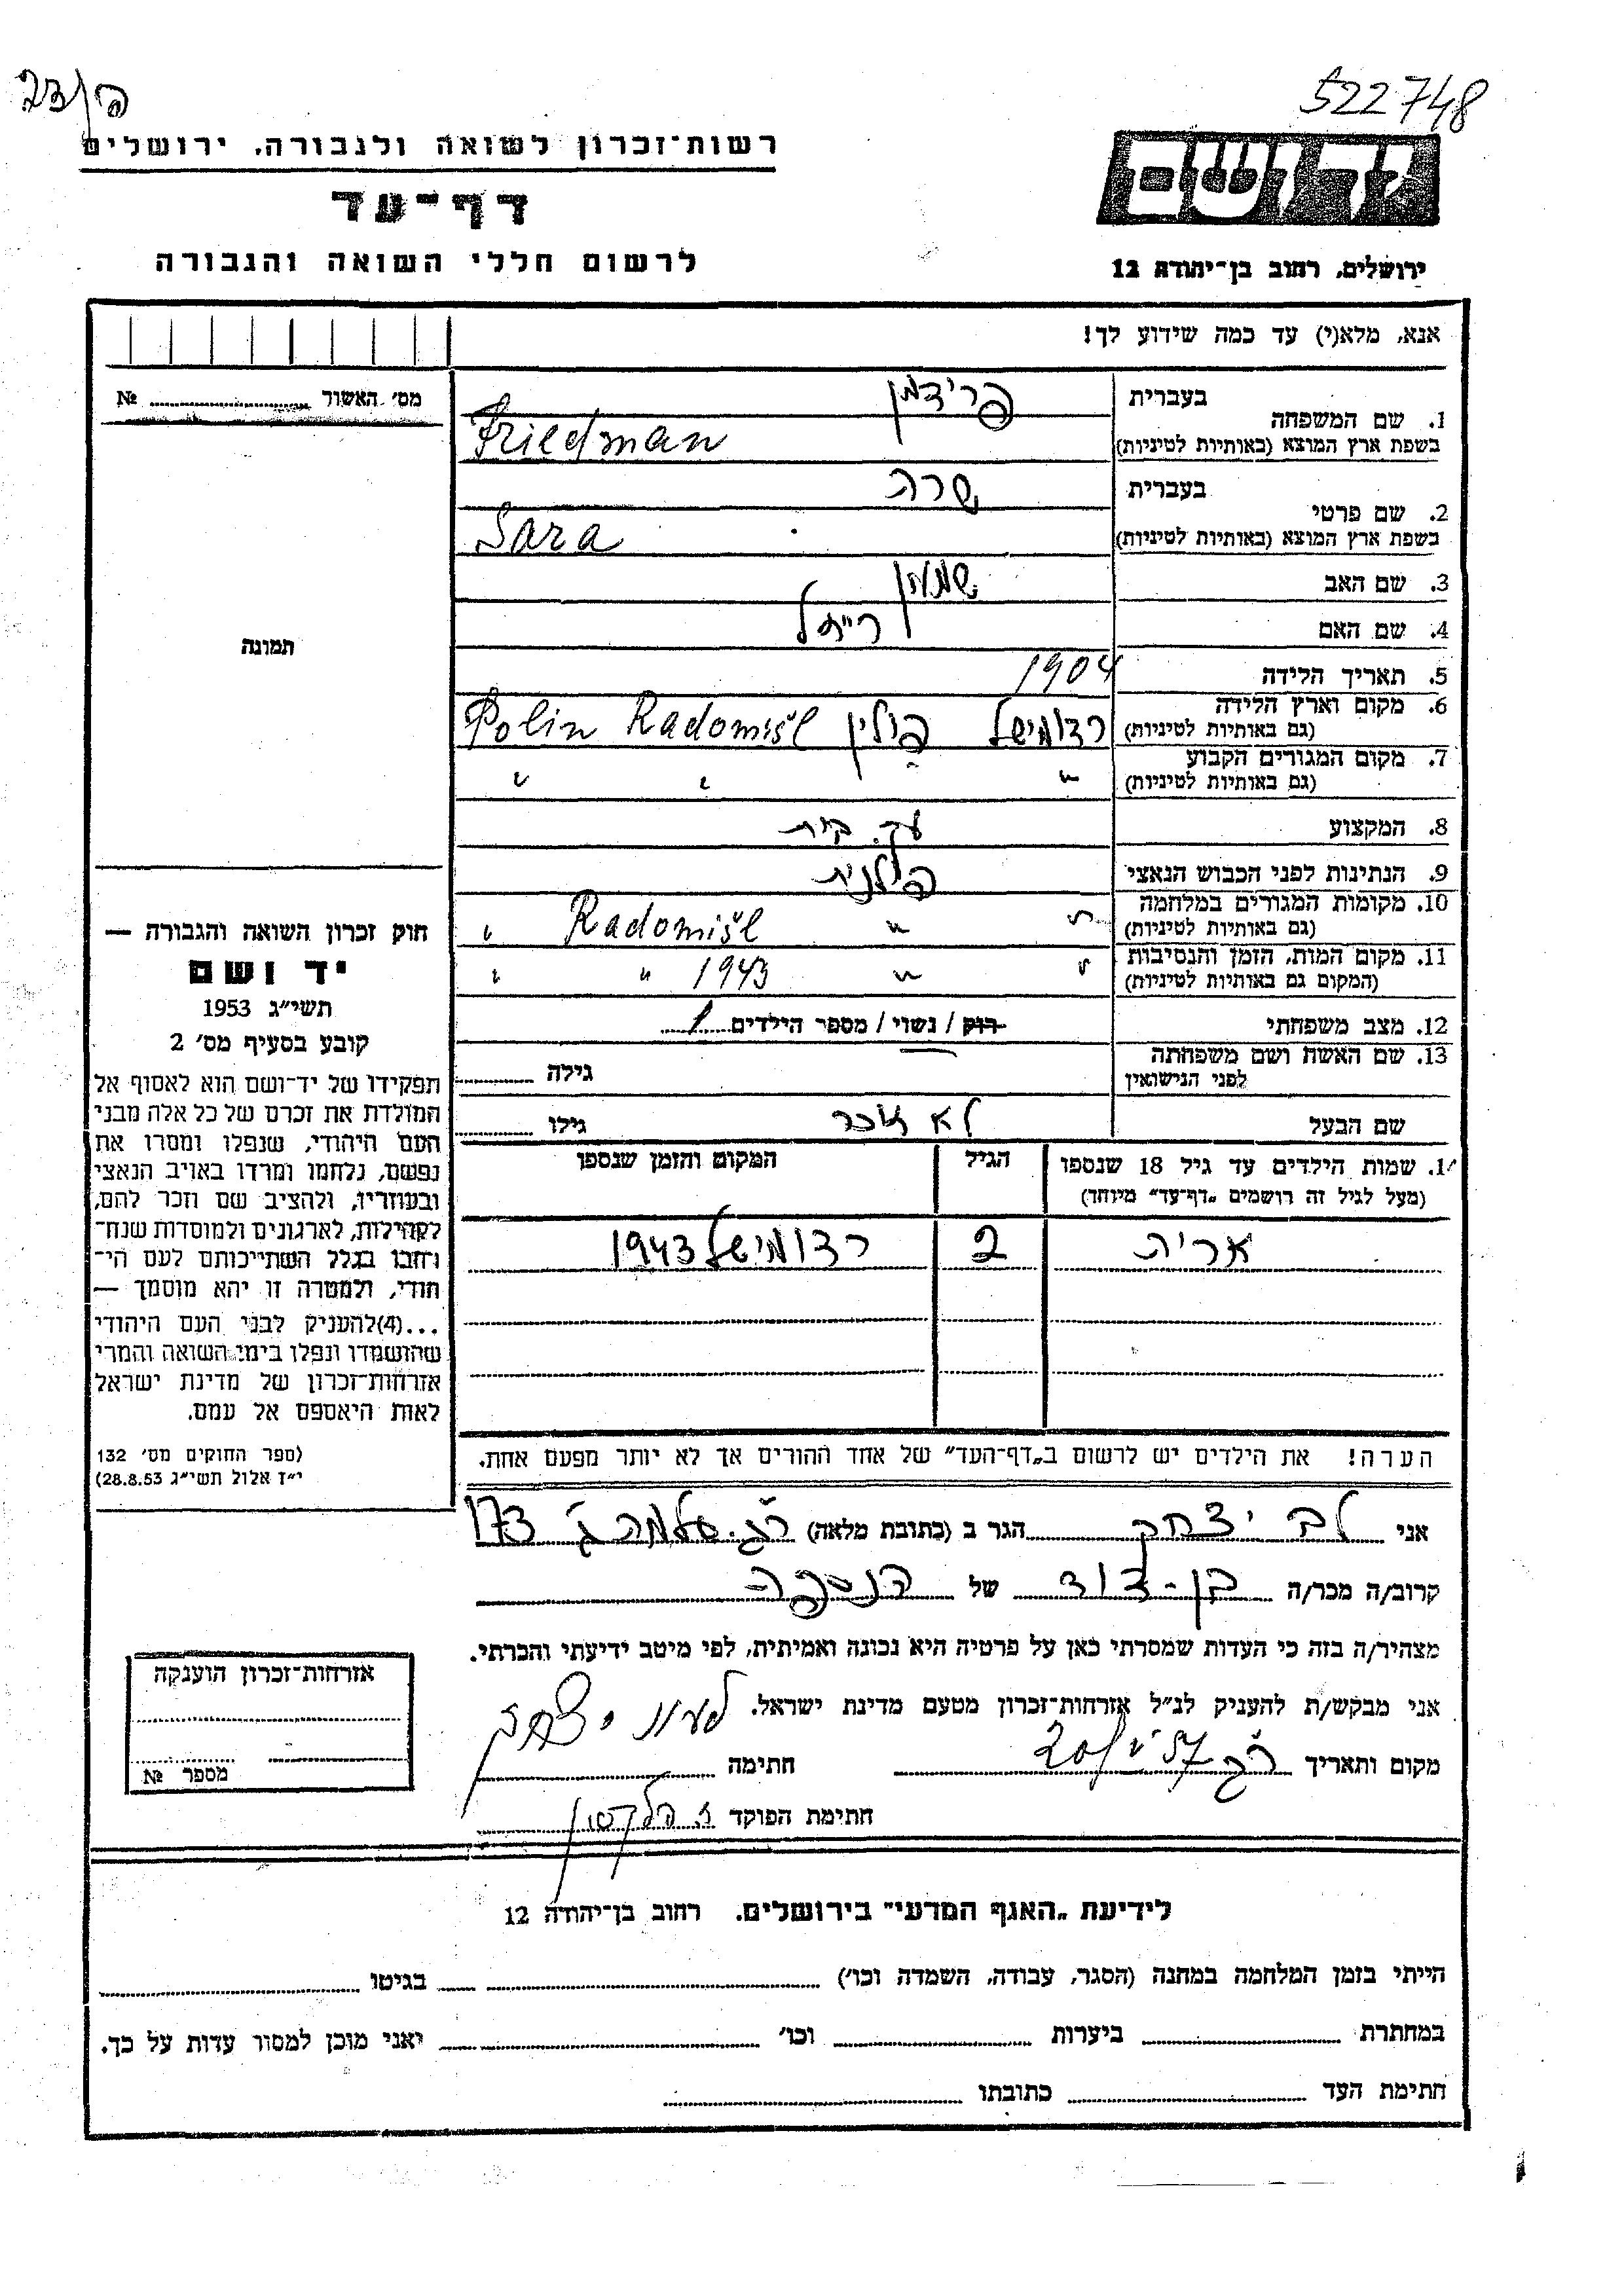 פ/23
522748
רשות־זכרון לשואה ולגבורה, ירושלים
דף־עד
לרשום חללי השואה והגבורה
יד ושם
ירושלים, רחוב בן־יהודה 12
אנא, מלא(י) עד כמה שידוע לך!
מס׳ האשור № 
1. שם המשפחה בעברית פרידמן
בשפת ארץ המוצא (באותיות לטיניות) Friedman
2. שם פרטי בעברית שרה
בשפת ארץ המוצא (באותיות לטיניות) Sara
3. שם האב שמעון
4. שם האם רייזל
5. תאריך הלידה 1904
6. מקום וארץ הלידה (גם באותיות לטיניות) רדומישל פולין Radomišl Polin
7. מקום המגורים הקבוע (גם באותיות לטיניות) " " "
8. המקצוע עק. בית
9. הנתינות לפני הכבוש הנאצי פולנית
10. מקומות המגורים במלחמה (גם באותיות לטיניות) " " Radomišl "
11. מקום המות, הזמן והנסיבות (המקום גם באותיות לטיניות) " " 1943 " "
12. מצב משפחתי רוק / נשוי / מספר הילדים 1
13. שם האשה ושם משפחתה לפני הנישואין גילה
שם הבעל לא זוכר גילו
14. שמות הילדים עד גיל 18 שנספו
(מעל לגיל זה רושמים „דף־עד" מיוחד)
הגיל
המקום והזמן שנספו
ארית 2 רדומישל 1943
הערה! את הילדים יש לרשום ב„דף־העד" של אחד ההורים אך לא יותר מפעם אחת.
תמונה
חוק זכרון השואה והגבורה —
יד ושם
תשי״ג 1953
קובע בסעיף מס׳ 2
תפקידו של יד־ושם הוא לאסוף אל
המולדת את זכרם של כל אלה מבני
העם היהודי, שנפלו ומסרו את
נפשם, נלחמו ומרדו באויב הנאצי
ובעוזריו, ולהציב שם וזכר להם,
לקהילות, לארגונים ולמוסדות שנח־
רבו בגלל השתייכותם לעם הי־
הודי, ולמטרה זו יהא מוסמך —
...(4)להעניק לבני העם היהודי
שהושמדו ונפלו בימי השואה והמרי
אזרחות־זכרון של מדינת ישראל
לאות היאספם אל עמם.
(ספר החוקים מס׳ 132
י״ז אלול תשי״ג 28.8.53)
אני לב יצחק הגר ב (כתובת מלאה) ר״ג. סלמה ג׳ 173
קרוב/ה מכר/ה בן־דוד של הנספה
מצהיר/ה בזה כי העדות שמסרתי כאן על פרטיה היא נכונה ואמיתית, לפי מיטב ידיעתי והכרתי.
אני מבקש/ת להעניק לנ״ל אזרחות־זכרון מטעם מדינת ישראל.
מקום ותאריך ר״ג 20/ 57 חתימה יצחק
חתימת הפוקד
אזרחות־זכרון הוענקה
מספר №
לידיעת „האגף המדעי" בירושלים. רחוב בן־יהודה 12
הייתי בזמן המלחמה במחנה (הסגר, עבודה, השמדה וכו׳) בגיטו
במחתרת ביערות וכו׳ ואני מוכן למסור עדות על כך.
חתימת העד כתובתו